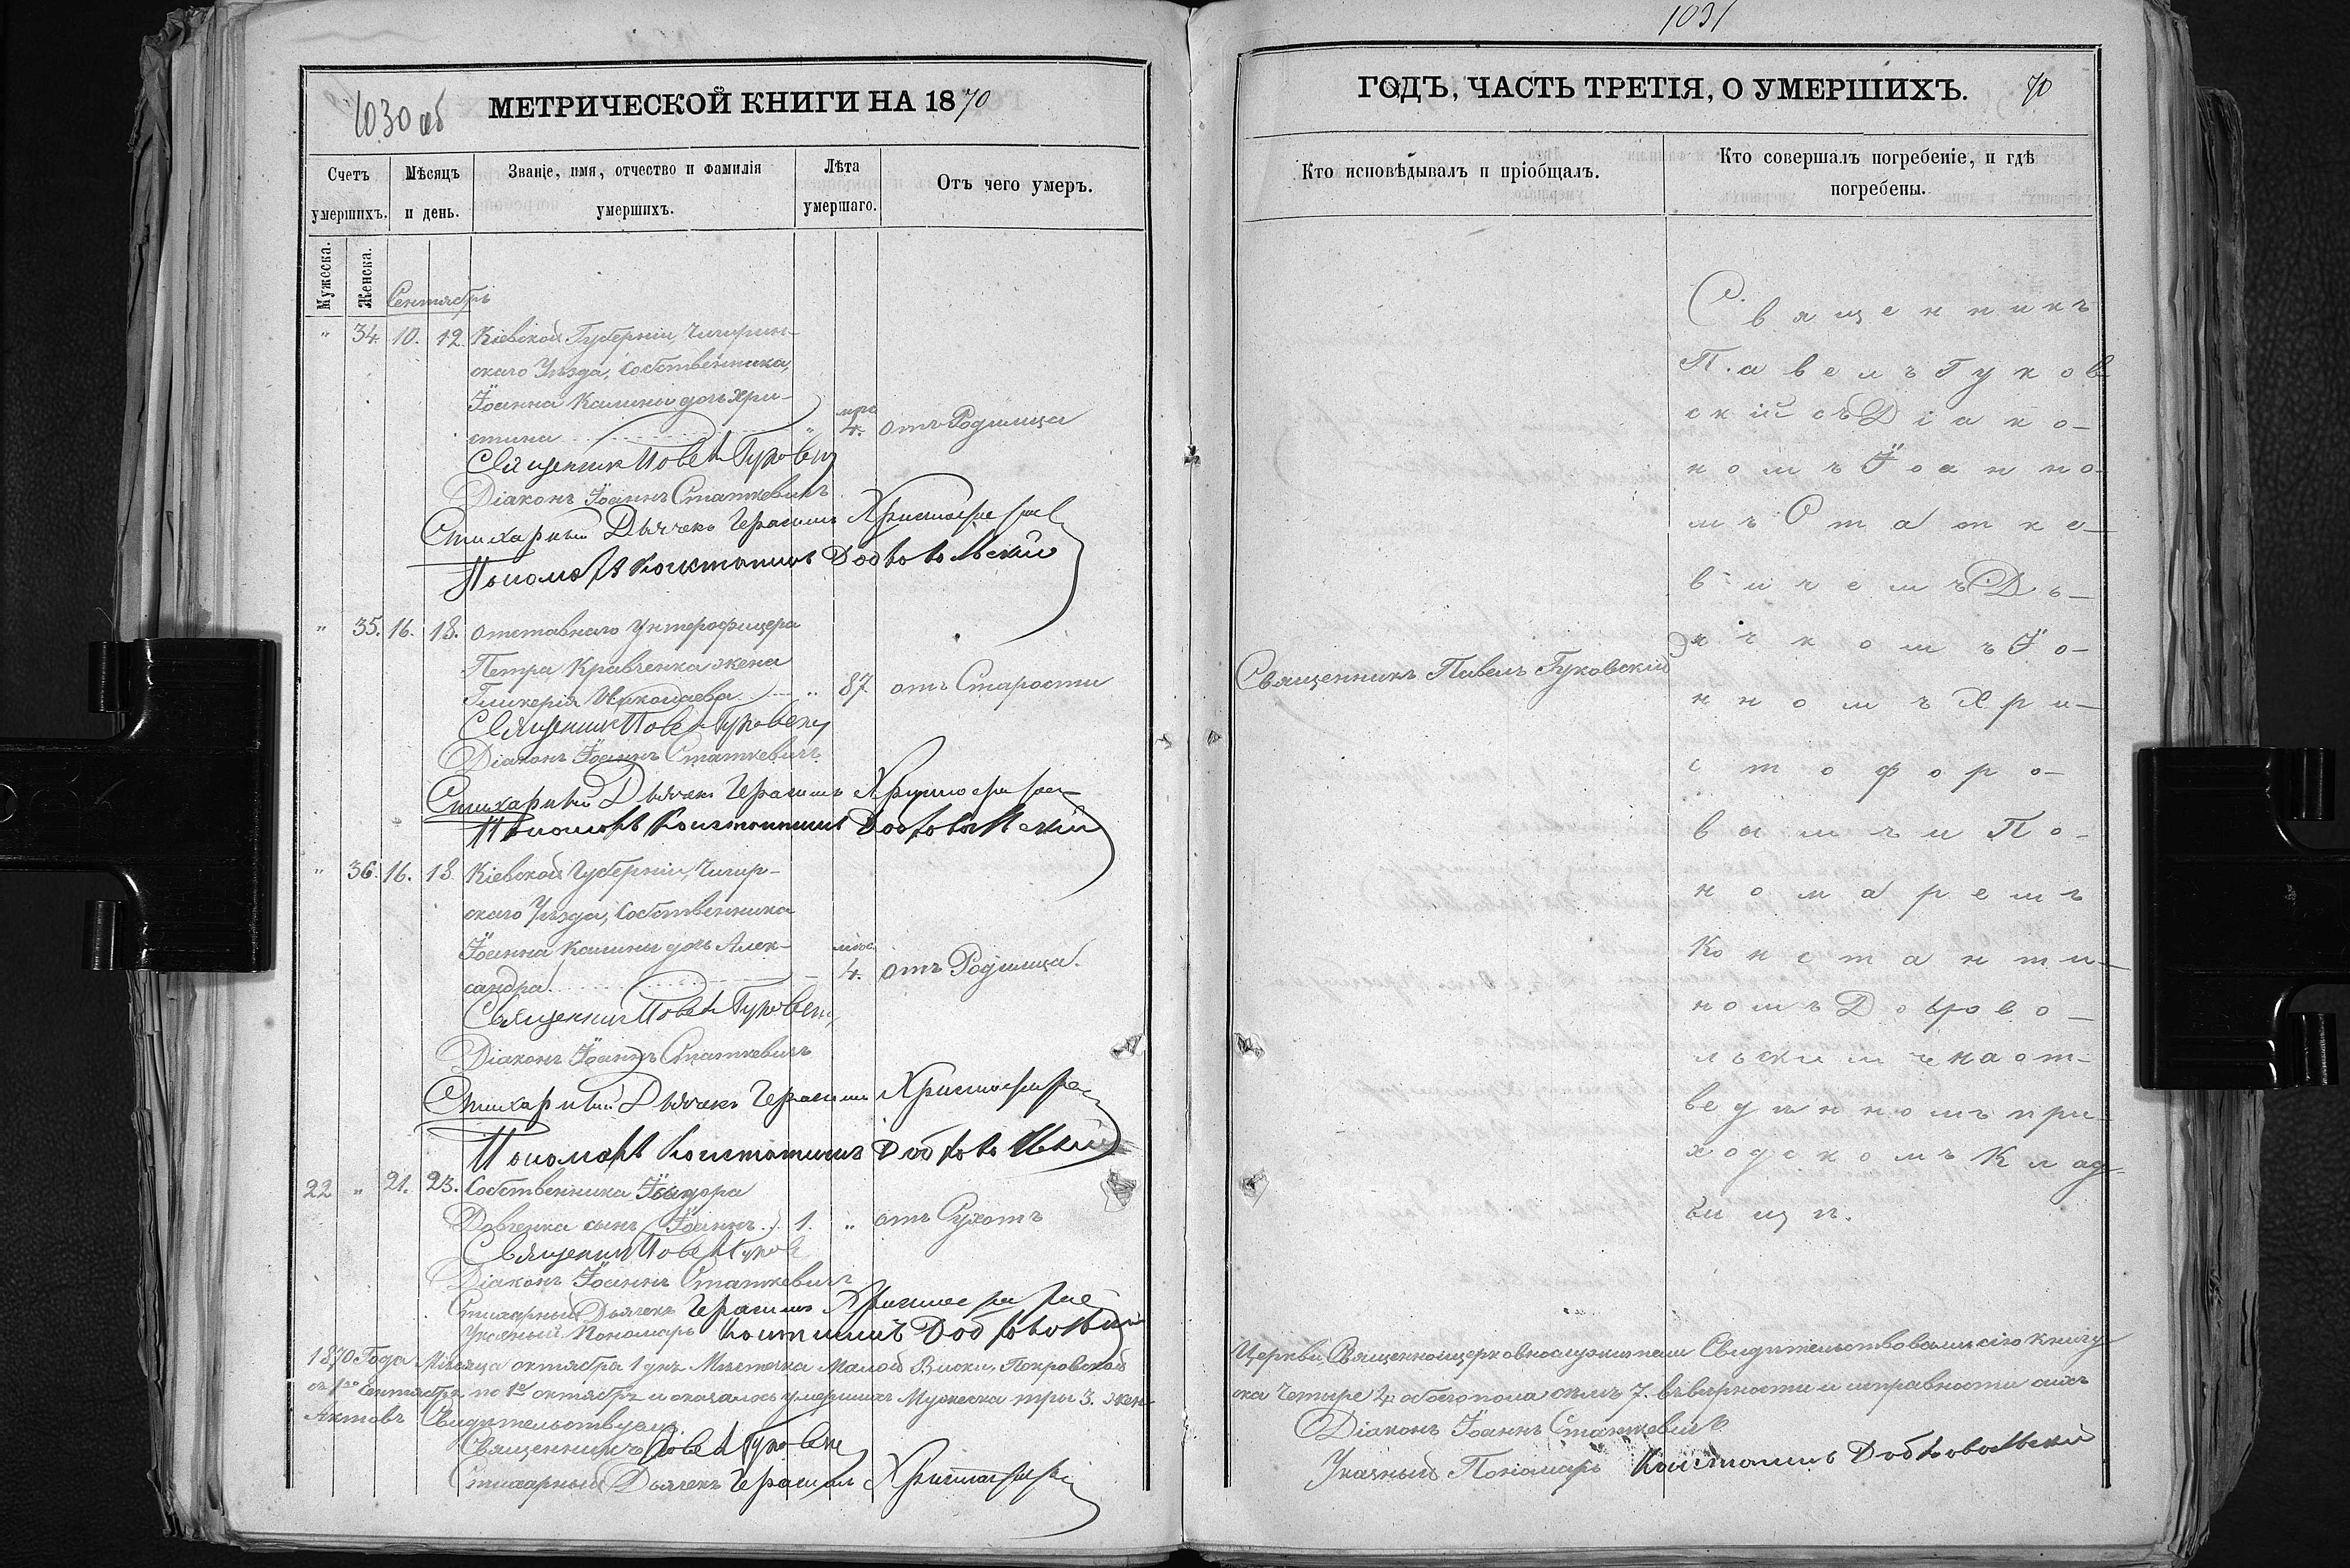 1030 об
МЕТРИЧЕСКОЙ КНИГИ НА 1870
Счетъ умершихъ.
Мѣсяцъ и день.
Званіе, имя, отчество и фамилія умершихъ.
Лѣта умершаго.
Отъ чего умеръ.
Мужеска.
Женска.
Сентябрь
" 34. 10. 12. Кіевской Губерніи, Чигирин-
скаго Уѣзда, Собственника,
Іоанна Калины дочь Хри-
стина " мѣс 4. отъ Родимца
Священник Павел Гуковскій
Діаконъ Іоаннъ Статкевичъ
Стихарный Дьячекъ Герасимъ Христофоров
Пономарь Константинъ Добровольскій
" 35. 16. 18. Отставнаго Унтерофицера
Петра Кравченка жена
Гликерія Николаева " 87 отъ Старости
Священник Павел Гуковскій
Діаконъ Іоаннъ Статкевичъ
Стихарный Дьячекъ Герасимъ Христофоров
Пономарь Константинъ Добровольскій
" 36. 16. 18. Кіевской Губерніи, Чигир-
скаго Уѣзда, Собственника
Іоанна Калины дочь Алек-
сандра мѣс. 4. отъ Родимца.
Священник Павел Гуковскій
Діаконъ Іоаннъ Статкевичъ
Стихарный Дьячекъ Герасимъ Христофоров
Пономарь Константинъ Добровольскій
22 " 21. 23. Собственника
Довченка сынъ Іоаннъ 1. " отъ Сухотъ
Священник Павел Гуков
Діаконъ Іоаннъ Статкевичъ
Стихарный Дьячекъ Герасимъ Христофоров
Указный Пономарь Константинъ Добровольскій
1870 Года Мѣсяца октября 1 дня Мѣстечка Малой Виски, Покровской
съ 1го Сентября по 1е октября и оказалось умершихъ Мужеска три 3. жен-
Актовъ Свидѣтельствуемъ.
Священникъ Павел Гуковскій
Стихарный Дьячекъ Герасимъ Христофоров
1031
ГОДЪ, ЧАСТЬ ТРЕТІЯ, О УМЕРШИХЪ. 70
Кто исповѣдывалъ и пріобщалъ.
Кто совершалъ погребеніе, и гдѣ погребены.
Священникъ Павелъ Гуковскій
Священникъ
Павелъ Гуков
скій съ Діако-
номъ Іоанно-
мъ Статке-
вичемъ Дь-
ячкомъ Іо-
нномъ Хри-
стофоро-
вамъ и По-
номаремъ
Константи-
номъ Доброво-
льскимъ на от-
веденномъ при-
ходскомъ Клад-
бищѣ.
Церкви, Священноцерковнослужители Свидѣтельствовали сію книгу
ска Четыре 4. обоего пола семъ 7. въ вѣрности и исправности сихъ
Діаконъ Іоаннъ Статкевичъ
Указный Пономарь Константинъ Добровольскій